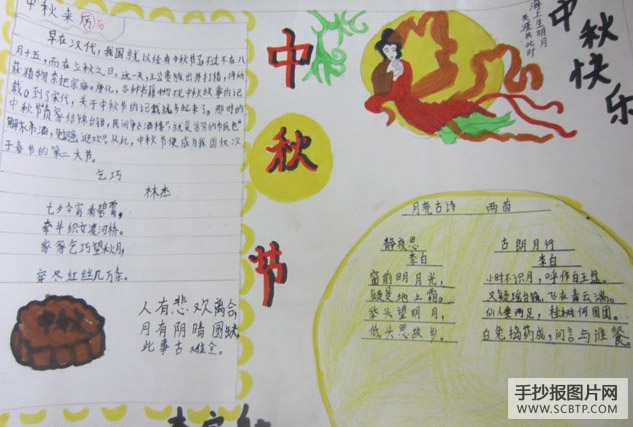 中秋来历
早在汉代,我国就以经有中秋节了,不过不在八
月十五,而在立秋之日。这一天,王公贵族出外打猎,将所
获猎物奉把宗庙。唐化,各种书籍中才
载。到了宋代,关于中秋节的记载就多起来了。那时的
中秋节
从此,中秋节便成为我国仅次
于春节的第二大节。
乞巧
林杰
七夕今宵看碧霄,
牵牛织女渡河桥。
家家乞巧望秋月,
穿尽红丝几万条。
中秋
人有悲欢离合,
月有阴晴圆缺,
此事古难全。
中
秋
节
海上生明月
天涯共此时
中秋快乐
月亮古诗 两首
静夜思
李白
窗前明月光,
疑是地上霜。
举头望明月,
低头思故乡。
古朗月行
李白
小时不识月,呼作白玉盘。
又疑瑶台镜,飞在青云端。
仙人垂两足,桂树何团团。
白兔捣药成,问言与谁餐。
手抄报图片网
WWW.SCBTP.COM